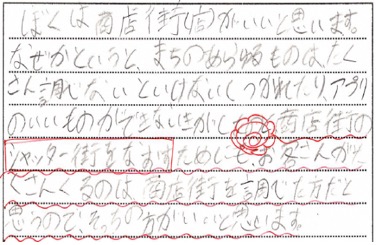 ぼくは商店街(店)がいいと思います。
なぜかというと、まちのあらゆるものは、たく
さん調べないといけないしつかれたり、アプリ
のいいものができないきがして商店街の
シャッター街をなおすためにもお客さんがた
くさんくるのは商店街を調べた方だと
思うので、そっちの方がいいと思います。